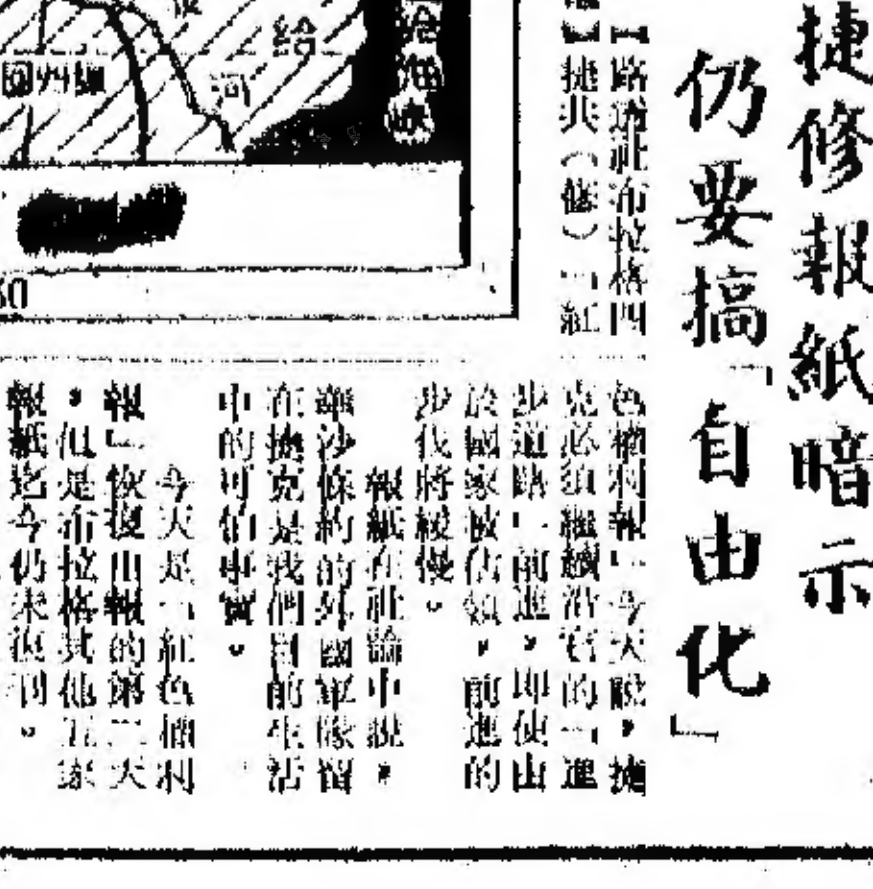 捷修報紙暗示
仍要搞「自由化」
【路透社布拉格四
】捷共(修)「紅
色權利報」今天說,捷
克必須繼續沿它的「進
步道路」前進,即使由
於國家被佔領,前進的
步伐將緩慢。
報紙在社論中說,
華沙條約的外國軍隊留
在捷克是我們目前生活
中的可怕事實。
今天是「紅色權利
報」恢復出報的第二天
,但是布拉格其他五家
報紙迄今仍未復刊。
給
河